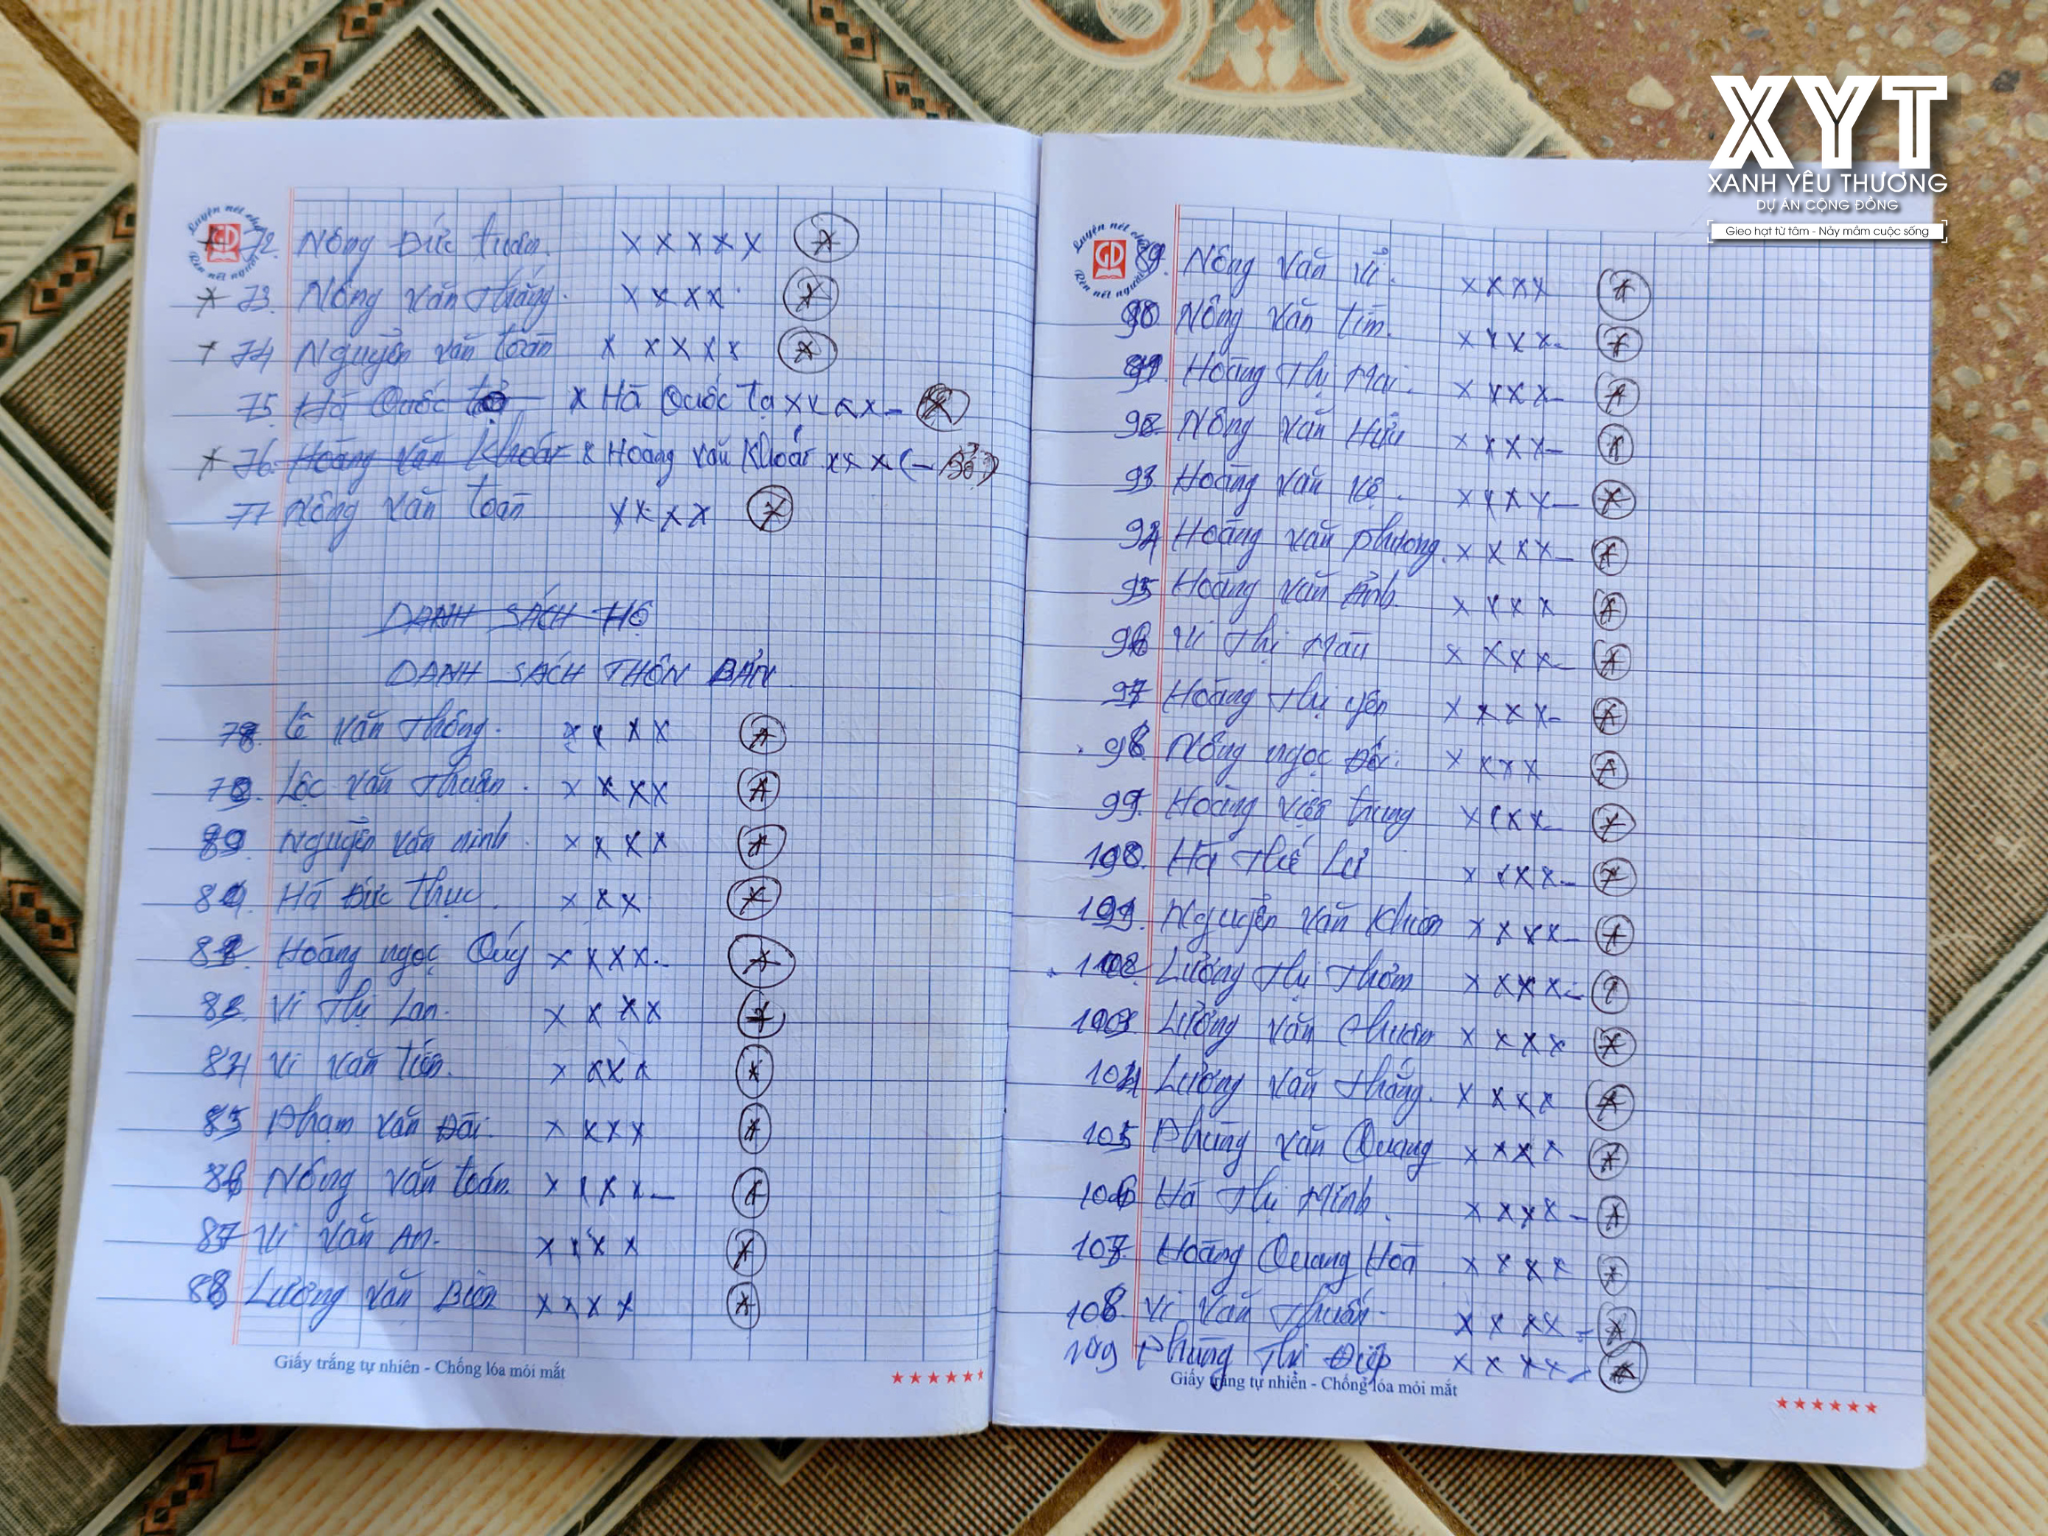 72. Nông Đức Tuân. x x x x x
73. Nông Văn Thắng. x x x x
74 Nguyễn Văn Toàn x x x x x
75. Hà Quốc x Hà Quốc Tạ x x x x
76. Hoàng Văn Khoát x Hoàng Văn Khoát x x x
77 Nông Văn Toàn x x x x
DANH SÁCH HỘ
DANH SÁCH THÔN BẢN
78. Văn Thông. x x x x
79. Lộc Văn Thuận. x x x x
80 Nguyễn Văn Ninh. x x x x
81. Hà Đức Thục. x x x
82. Hoàng Ngọc Quý x x x x
83. Vi Thị Lan. x x x x
84 Vi Văn Tiến. x x x x
85 Phạm Văn Đài. x x x x
86 Nông Văn Toán. x x x x
87 Vi Văn An. x x x x
88 Lương Văn Biên x x x x
Giấy trắng tự nhiên - Chống lóa mỏi mắt
Luyện nét chữ
GD
Rèn nết người
89. Nông Văn Vỉ. x x x x
90 Nông Văn Tím. x x x x
91. Hoàng Thị Mai. x x x x
92 Nông Văn Hữu x x x x
93 Hoàng Văn x x x x
94 Hoàng Văn Phương. x x x x
95 Hoàng Văn Ảnh x x x x
96 Vi Thị x x x x
97 Hoàng Thị Yên x x x x
98 Nông Ngọc x x x x
99. Hoàng Việt Trung x x x x
100. Hà Thế Lư x x x x
101. Nguyễn Văn x x x x
102 Lương Thị Thơm x x x x
103 Lương Văn x x x x
104 Lương Văn Thắng. x x x x
105 Phùng Văn Quang x x x x
106 Hà Thị Minh. x x x x
107 Hoàng Quang Hòa x x x x
108. Vi Văn Thuấn. x x x x
109 Phùng Thị Điệp x x x x
Giấy trắng tự nhiên - Chống lóa mỏi mắt
XYT
XANH YÊU THƯƠNG
DỰ ÁN CỘNG ĐỒNG
Gieo hạt từ tâm - Nảy mầm cuộc sống